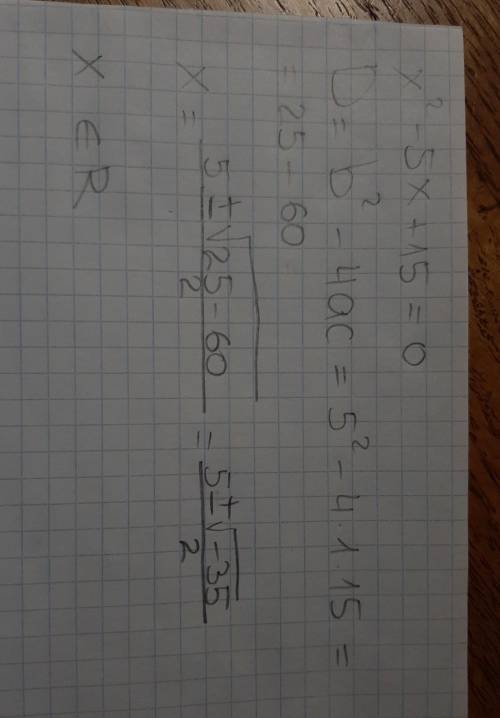 x² - 5x + 15 = 0
D = b² - 4ac = 5² - 4 · 1 · 15 =
= 25 - 60
x = (5 ± √(25 - 60))/2 = (5 ± √(-35))/2
x ∈ R